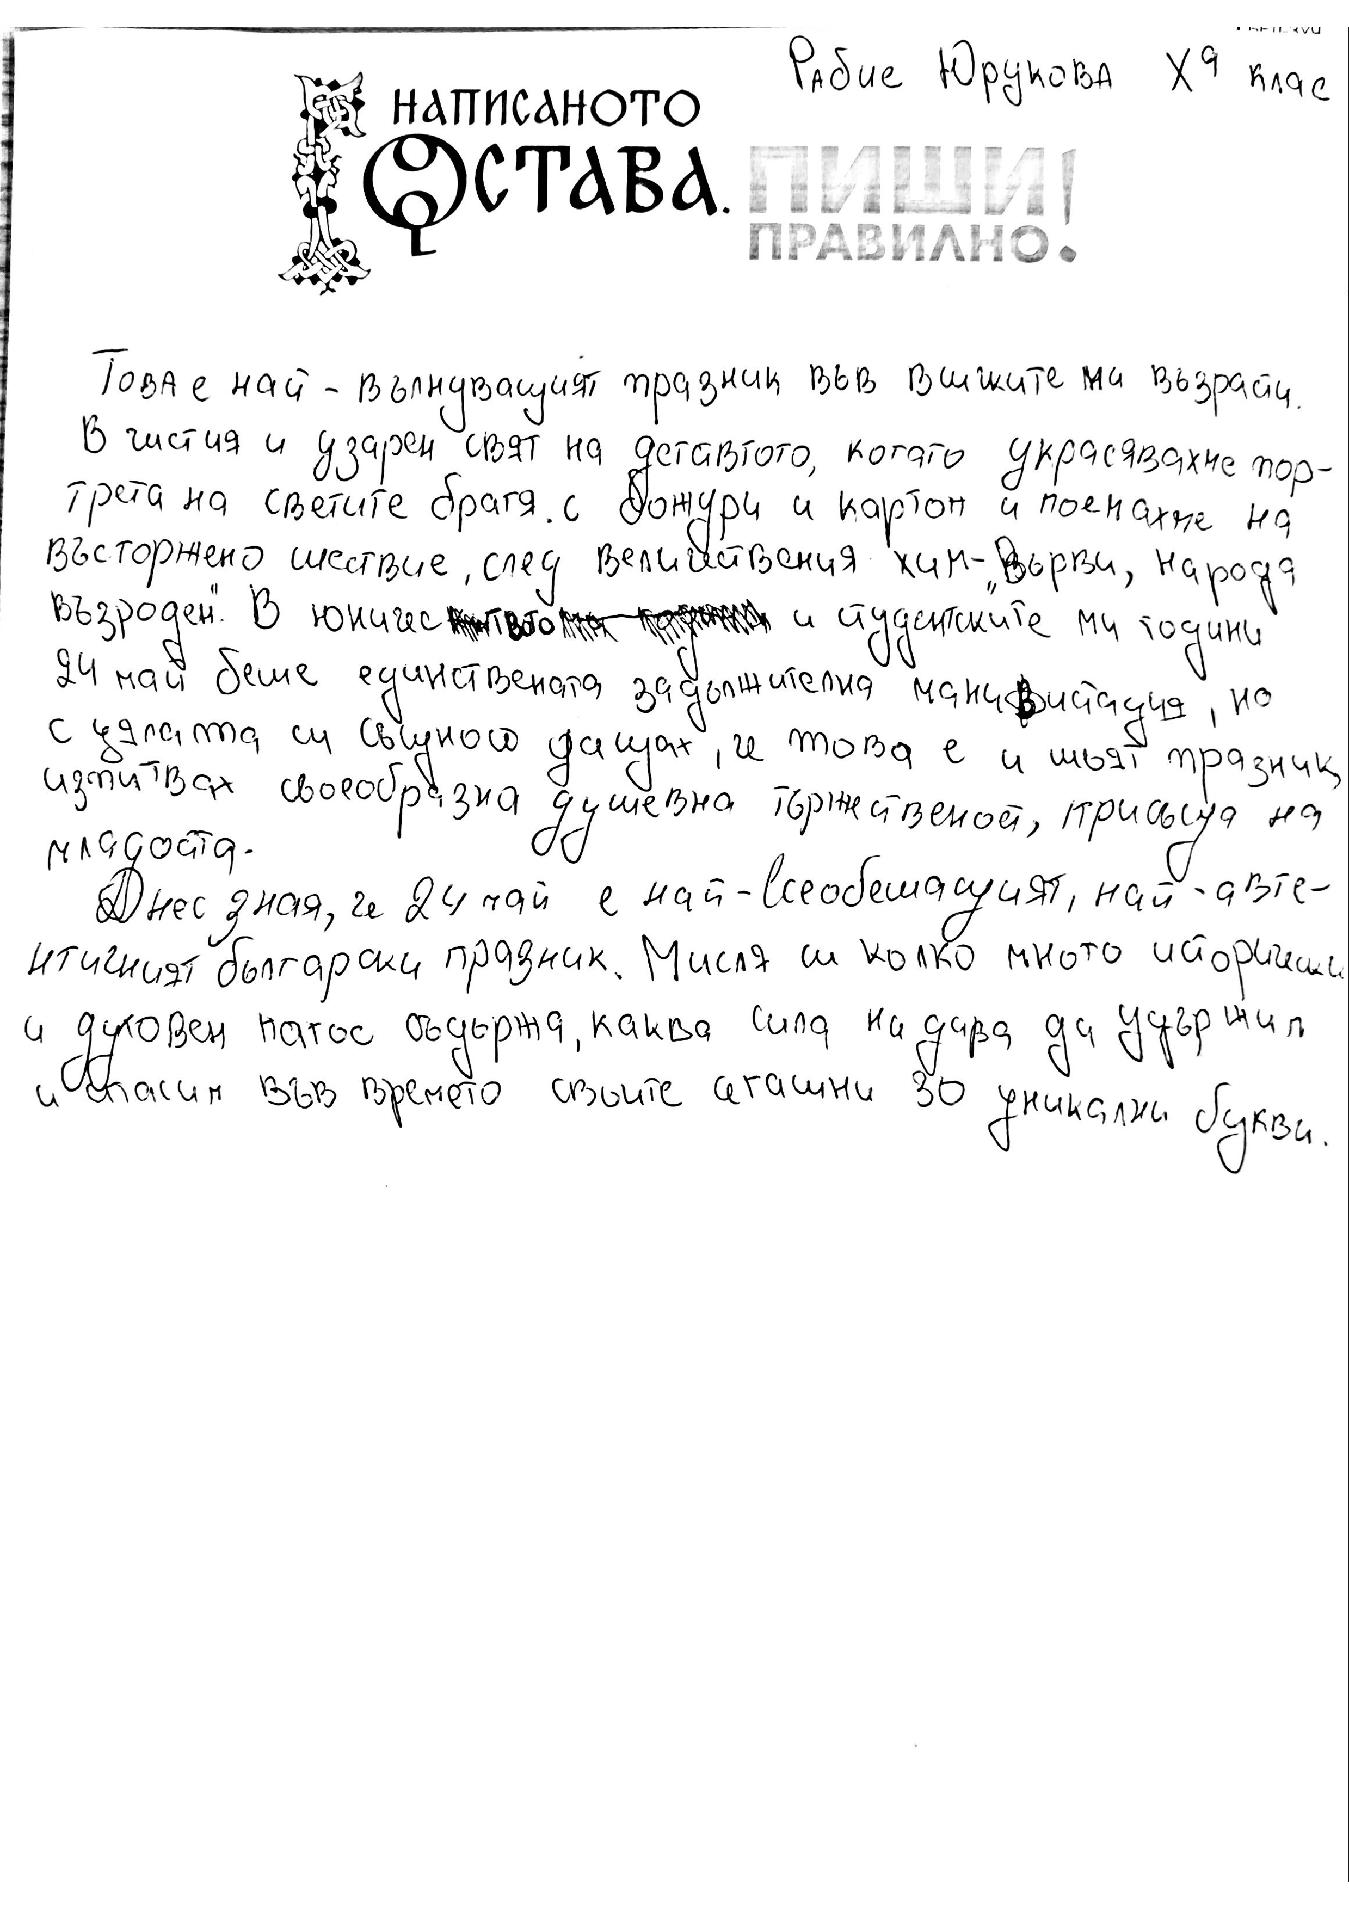 Рабие Юрукова Xа клас
НАПИСАНОТО
ОСТАВА. ПИШИ
ПРАВИЛНО!
Това е най-вълнуващият празник във вичките ми възрасти.
В чистия и узарен свят на детствтото, когато украсявахме пор-
трета на светите братя с божури и картон и поемахме на
въсторжено шествие, след величествения химн-„Върви, народа
възроден". В юничес и студентските ми години
24 май беше единствената задължителна манивистация, но
с цялата си същност усещах, че това е и моят празник,
изпитвах своеобразна душевна тържественост, присъща на
младоста.
Днес зная, че 24 май е най-всеобемащият, най-авте-
нтичният български празник. Мисля си колко много исторически
и духовен патос съдържа, каква сила ни дава да удържим
и спасим във времето своите сегашни 30 уникални букви.